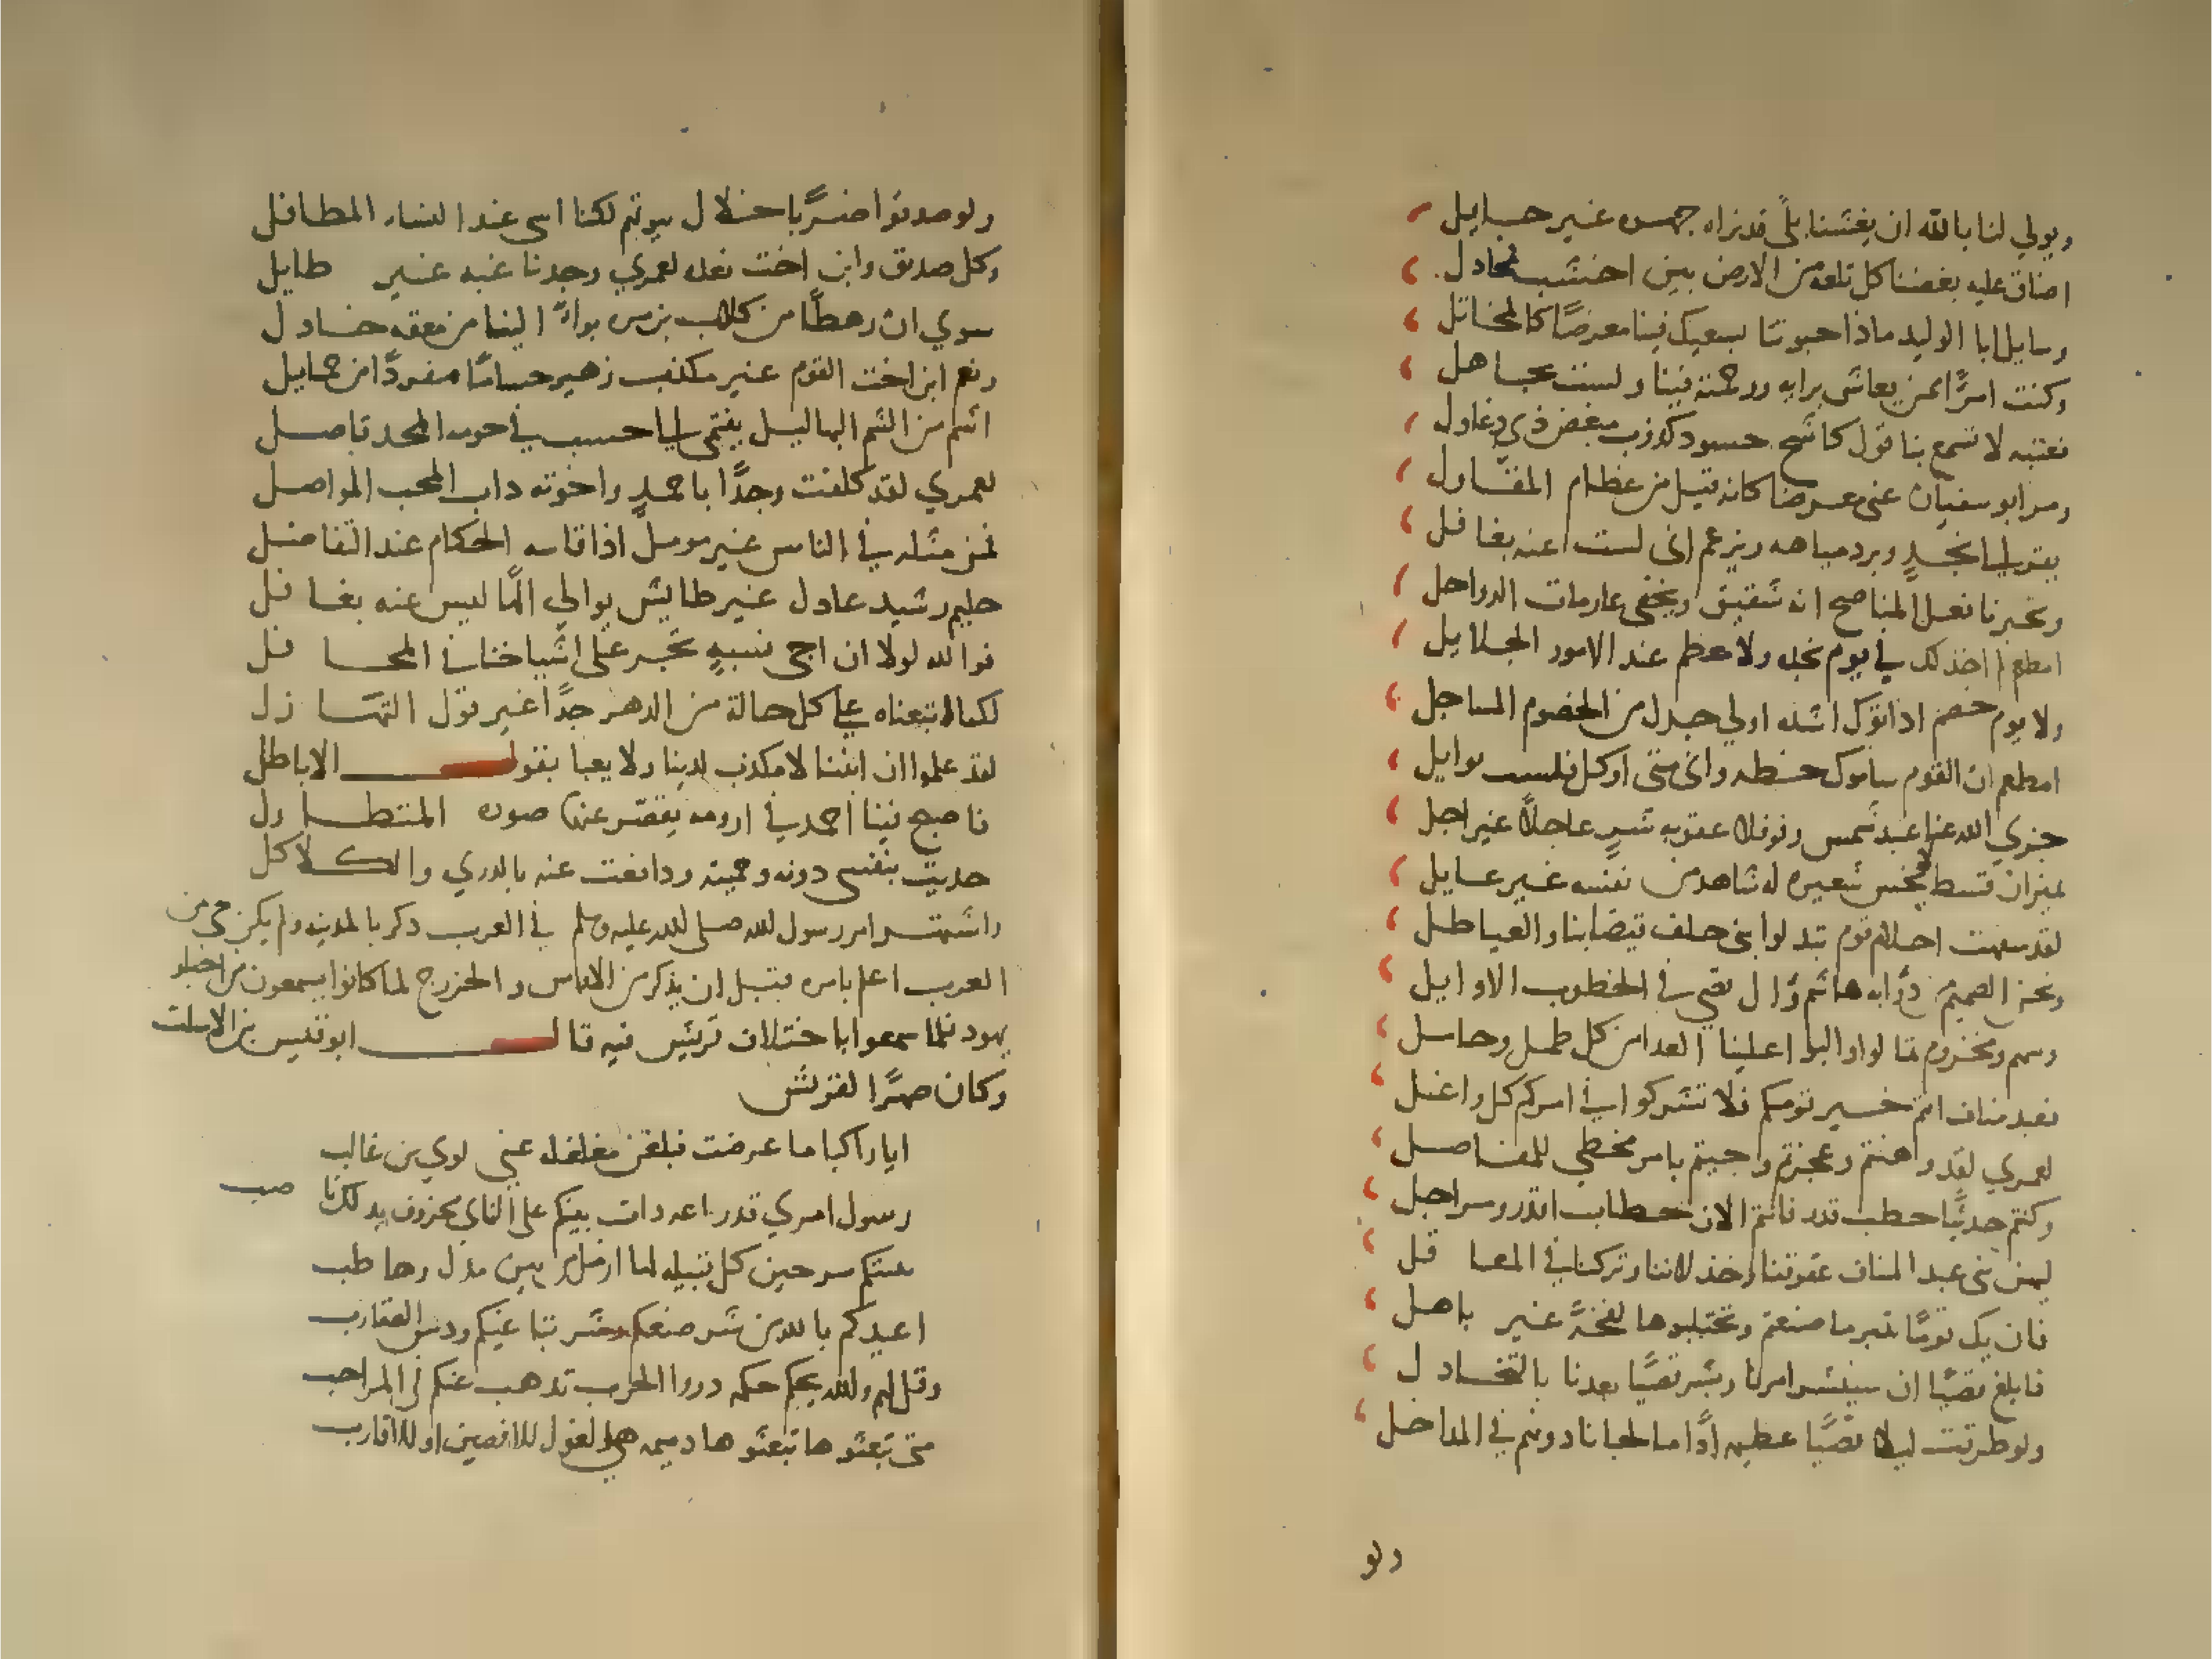 ويولي لنا بالله ان يغشنا بلى قد نراه جهره غير حايل
اضاق عليه بغضنا كل تلعة من الارض بين اخشب فمجادل
وسايل ابا الوليد ماذا حبوتنا بسعيك فينا معرضا كالمخاتل
وكنت امرًا ممن يعاش برايه ورحمته فينا ولست بجاهل
فعتبه لا تسمع بنا قول كاشح حسود كذوب مبغض ذي دغاول
ومر ابو سفيان عني معرضا كانه قيل من عظام المقاول
يفر الى نجدٍ وبرد مياهه ويزعم انى لست عنه بغافل
وتخبرنا فعل المناصح انه شفيق ويخفى عارمات الدواخل
امطعم اخذلك في يوم نجده ولا معظم عند الامور الجلايل
ولا يوم خصم اذا اتوك اشده اولي جدل من الخصوم المساجل
امطعم ان القوم ساموك خطه وانى متى اوكل فلست بوايل
جزي الله عنا عبد شمس ونوفلا عقوبه شرٍ عاجلًا غير اجل
بميزان قسط لا يخس شعيره له شاهد من نفسه غير عايل
لقد سفهت احلام قوم تبدلوا بنى خلف قيضا بنا والغياطل
ونحن الصميم من ذؤابه هاشم وال قصي في الخطوب الاوايل
وسهم ومخزوم تمالوا والبوا علينا العدا من كل طمل وخامل
فعبد مناف انتم خير قومكم فلا تشركوا في امركم كل واغل
لعمري لقد واهنتم وعجزتم وجيتم بامر مخطي للمفاصل
وكنتم حديثًا حطب قدر فانتم الان حطاب اقدر ومراجل
ليهن بنى عبد المناف عقوقنا وخذلاننا وتركنا في المعاقل
فان يك قومًا نمير ما صنعتم وتحتلبوها لقحةً غير باهل
فابلغ قصيًا ان سينشر امرنا وبشر قصيًا بعدنا بالتخاذل
ولو طرقت ليلا قصيًا عظيمه اذًا ما لجانا دونهم في المداخل
ولو
ولو صدقوا ضربًا خلال بيوتهم لكنا اسى عند النساء المطافل
وكل صديق وابن اخت نعده لعمري وجدنا غبه غير طايل
سوي ان رهطًا من كلاب بن مره براءً الينا من معقه خاذل
ونعم ابن اخت القوم غير مكذب زهير حسامًا مفردًا من حمايل
اشم من الشم البهاليل ينتمى الى حسب في حومه المجد فاصل
لعمري لقد كلفت وجدًا باحمدٍ واخوته داب المحب المواصل
فمن مثله في الناس غير مومل اذا قاسه الحكام عند التفاضل
حليم رشيد عادل غير طايش يوالي الها ليس عنه بغافل
فوالله لولا ان اجى بسبةٍ تجر على اشياخنا في المحافل
لكنا اتبعناه على كل حالة من الدهر جدًا غير قول التهازل
لقد علموا ان ابننا لا مكذب لدينا ولا يعبا بقول الاباطل
فاصبح فينا احمد في ارومه يقصر عنها صوره المتطاول
حدبت بنفسى دونه وحميته ودافعت عنه بالذري والكلاكل
واشتهر امر رسول الله صلى الله عليه وسلم في العرب ذكر بالمدينه ولم يكن حى من
العرب اعلم بامره قبل ان يذكر من الاوس والخزرج لما كانوا يسمعون من احبار
يهود فلما سمعوا باختلاف قريش فيه قال ابو قيس بن الاسلت
وكان صهرًا لقريش
ايا راكبا ما عرضت فبلغن مغلغله عني لوي بن غالب
رسول امري قد راعه ذات بينكم على الناي محزون بذلك ناصب
اعيذكم بالله من شر صنعكم وشر تباغيكم ودس العقارب
وقل لهم والله يحكم حكمه ذروا الحرب تذهب عنكم في المراحب
متى تبعثوها تبعثوها ذميمه هي الغول للاقصين او للاقارب